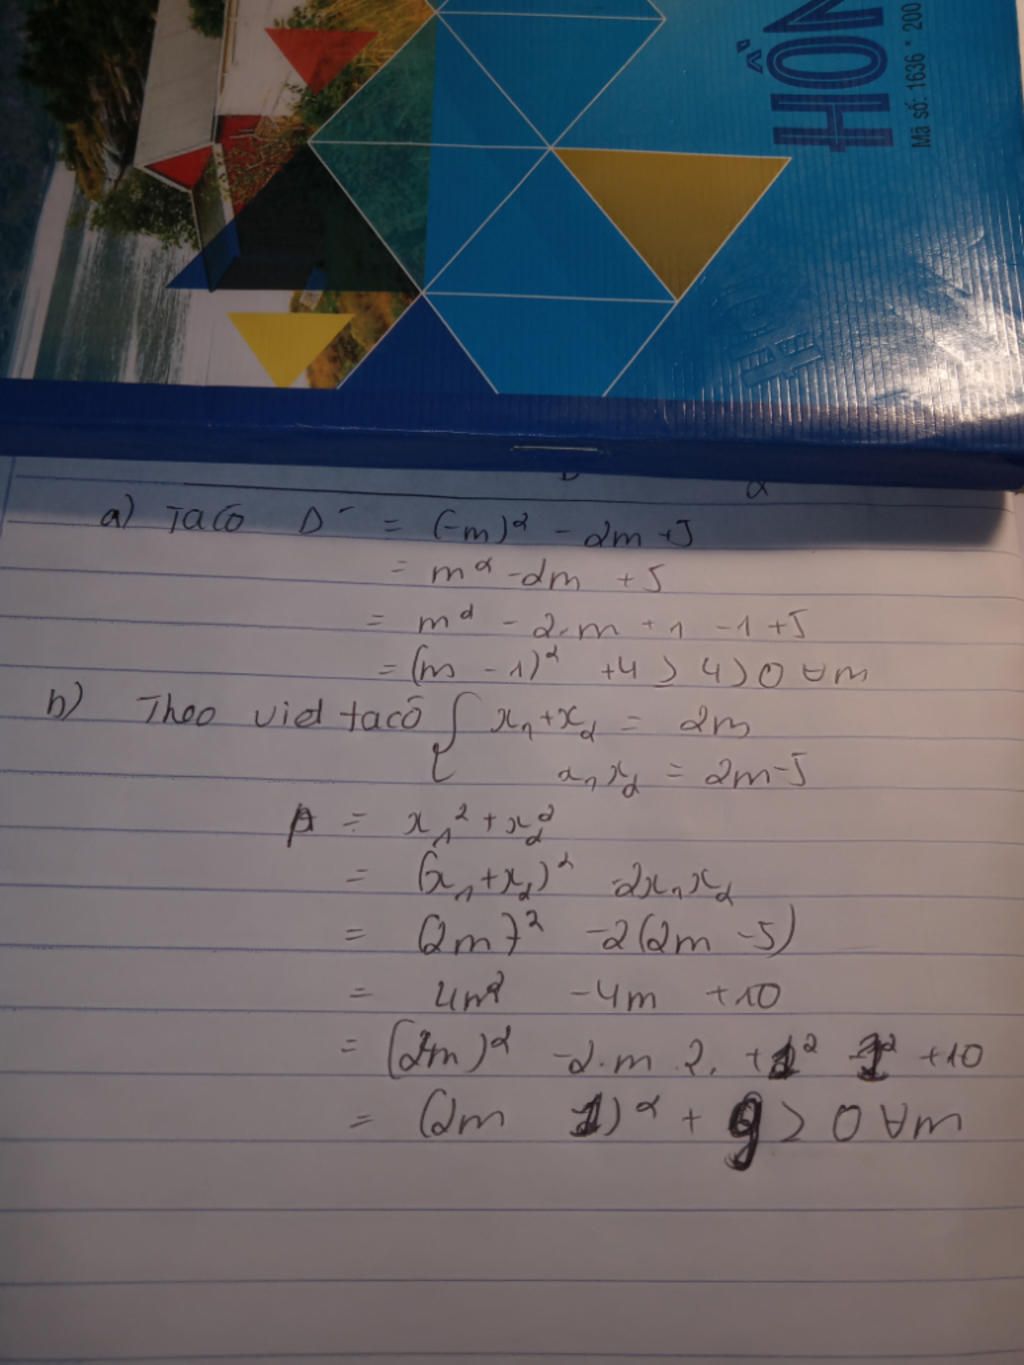 HỒN
Mã số: 1636 * 200
a) Ta có Δ' = (-m)² - 2m + 5
= m² - 2m + 5
= m² - 2.m + 1 - 1 + 5
= (m - 1)² + 4 > 4 > 0 ∀m
b) Theo viet ta có { x₁ + x₂ = 2m
x₁x₂ = 2m - 5
A = x₁² + x₂²
= (x₁ + x₂)² - 2x₁x₂
= (2m)² - 2(2m - 5)
= 4m² - 4m + 10
= (2m)² - 2.m.2. + 1² - 1² + 10
= (2m 1)² + 9 > 0 ∀m